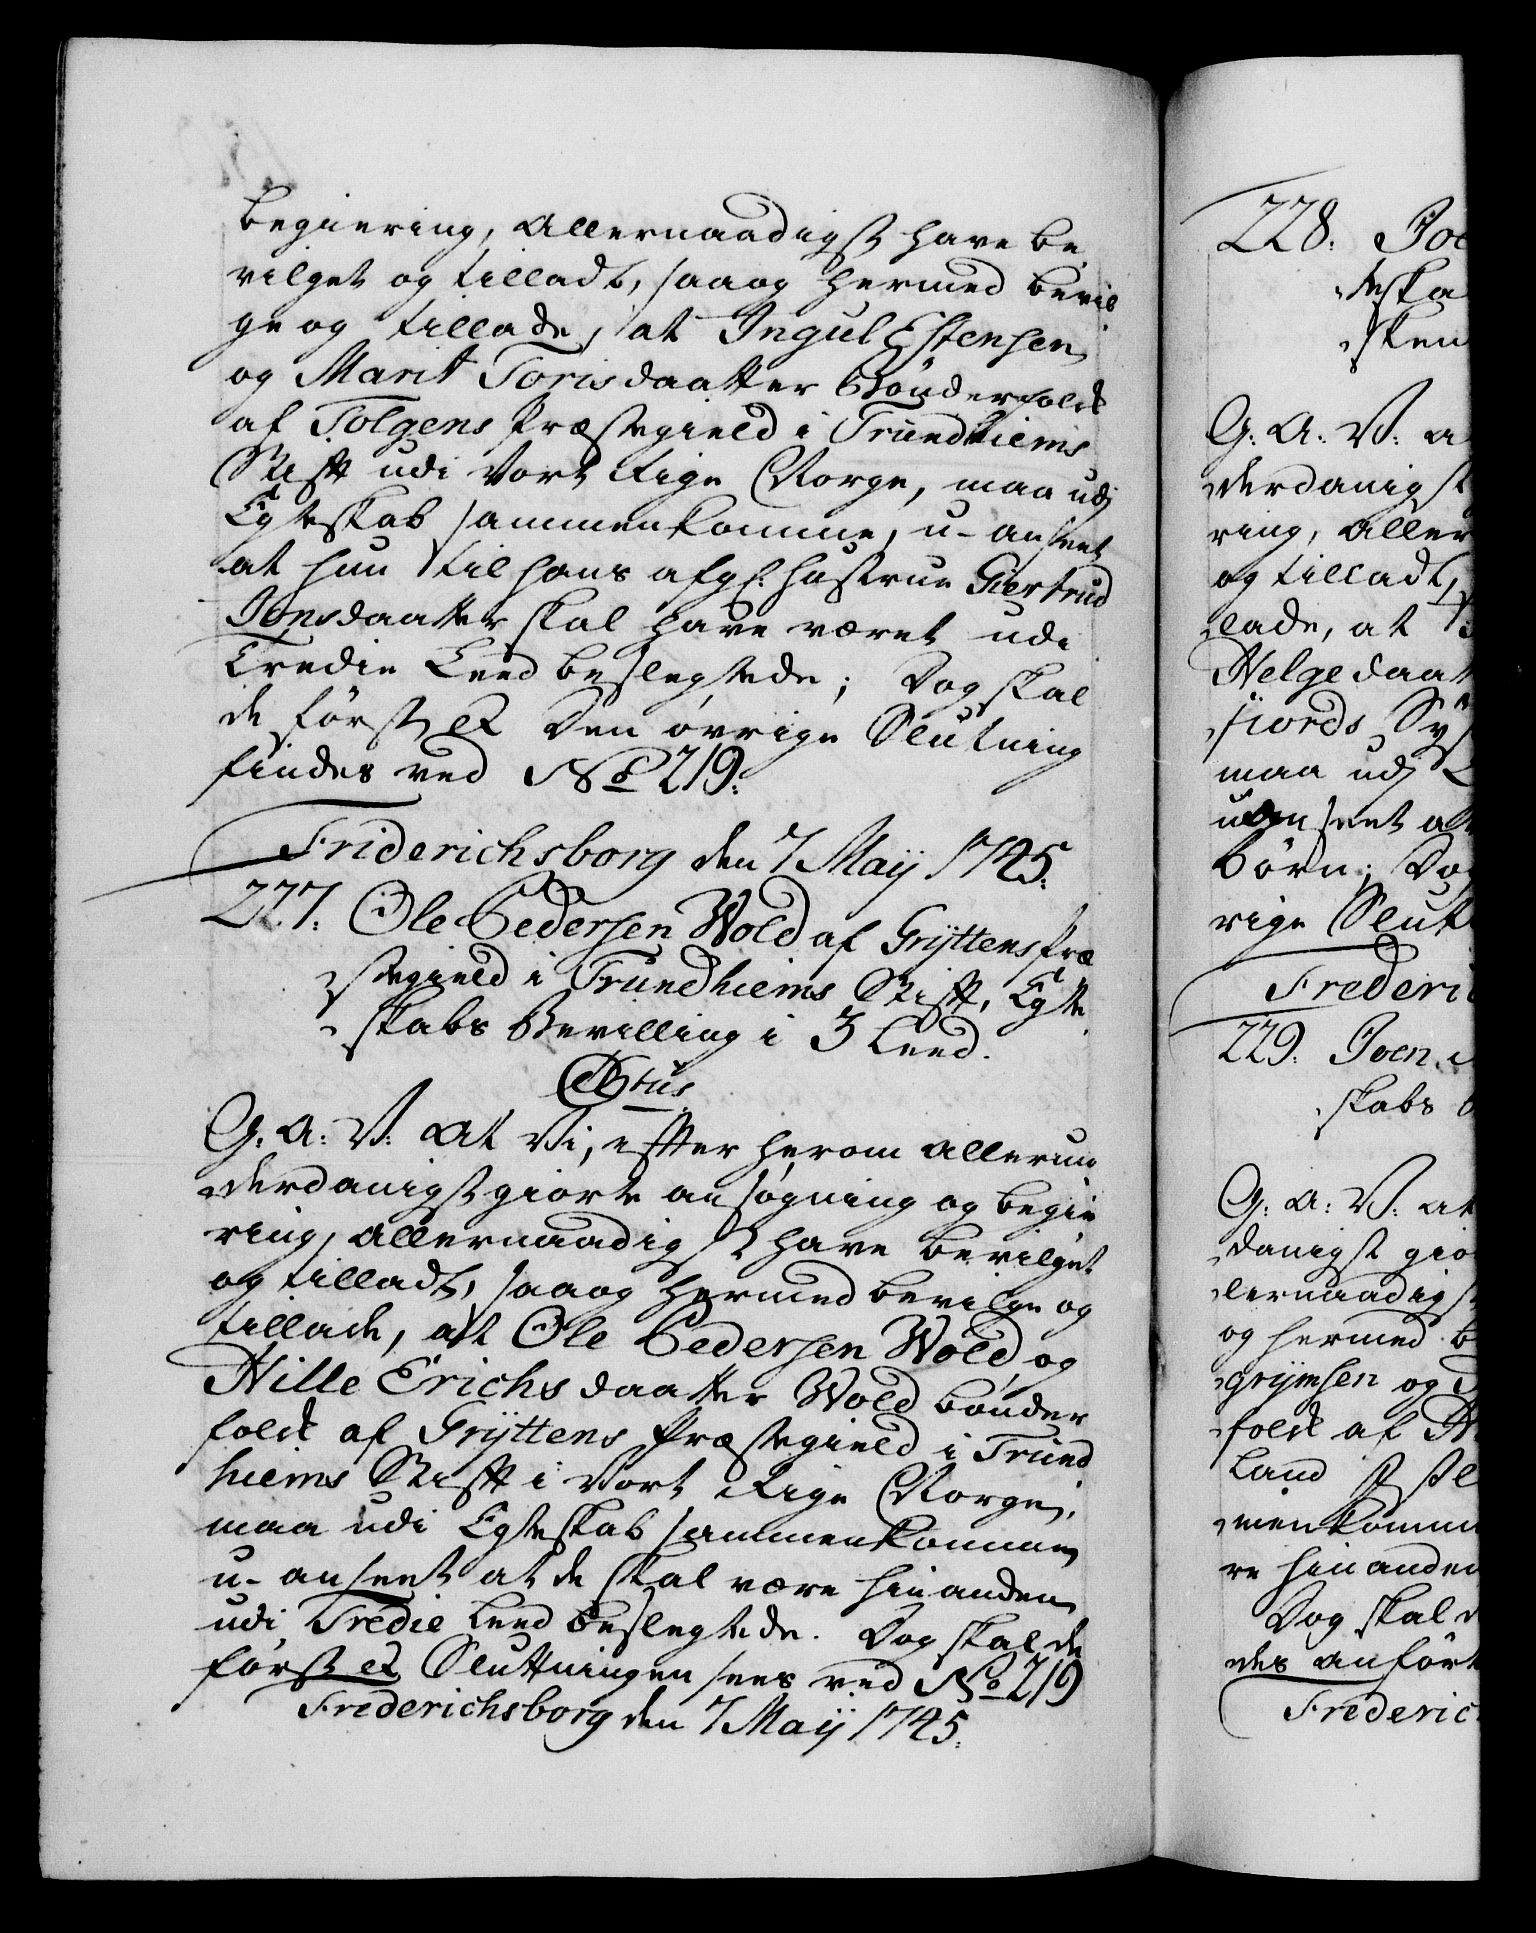 begiering, allernaadigst have be
vilget og tilladt, saa og hermed bevil
ge og tillade, at Ingul Estensen
og Marit Torisdaatter Bønderfolck
af Tolgens Præstegield i Trundhiems
Stift udi Vort Rige Norge, maa udj
Egteskab sammenkomme, u-anseet
at hun til hans afg: hustrue Giertrud
Jonsdaatter skal have været udi
Tredie Leed beslegtede; Dog skal
de først &c Den øvrige Slutning
findes ved No 219.
Friderichsborg den 7 Maij 1745.
227. Ole Pedersen Wold af Gryttens Præ
stegield i Trundhiems Stift, Egte
skabs Bevilling i 3 Leed.
G: A: V: at Vi, efter herom allerun
derdanigst giorte ansøgning og begie
ring, allernaadigst have bevilget
og tilladt, saa og hermed bevilge og
tillade, at Ole Pedersen Wold og
Hille Erichsdaatter Wold bønder
folck af Gryttens Præstegield i Trund
hiems Stift i Vort Rige Norge,
maa udi Egteskab sammenkomme,
u-anseet at de skal være hinanden
udi Tredie Leed beslegtede. Dog skal de
først &c Sluttningen sees ved No 219
Frederichsborg den 7 Maij 1745.
228.
G: A: V: a
derdanigst
ring, aller
og tilladt,
lade, at
Helgedaat
fiords Sy
maa udj
børn; Dog
rige Slut
Frederi
229. Joen
skabs
G: A: V: at
danigst gio
lernaadigst
og hermed b
grymsen og
folck af
Land
menkomm
re hinanden
Dog skal
des anført
Frederic